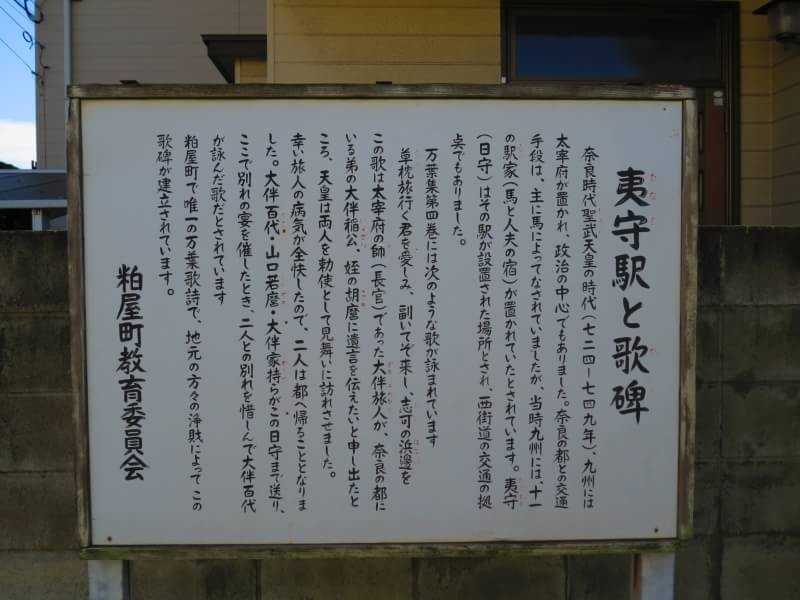 夷守駅と歌碑
奈良時代聖武天皇の時代(七二四−七四九年)、九州には
太宰府が置かれ、政治の中心でもありました。奈良の都との交通
手段は、主に馬によってなされていましたが、当時九州には、十一
の駅家(馬と人夫の宿)が置かれていたとされています。夷守
(日守)はその駅が設置された場所とされ、西街道の交通の拠
点でもありました。
万葉集第四巻には次のような歌が詠まれています
草枕旅行く君を愛しみ、副いてぞ来し、志可の浜邊を
この歌は太宰府の師(長官)であった大伴旅人が、奈良の都に
いる弟の大伴稲公、姪の胡麿に遺言を伝えたいと申し出たと
ころ、天皇は両人を勅使として見舞いに訪れさせました。
幸い旅人の病気が全快したので、二人は都へ帰ることとなりま
した。大伴百代・山口若麿・大伴家持らがこの日守まで送り、
ここで別れの宴を催したとき、二人との別れを惜しんで大伴百代
が詠んだ歌だとされています
粕屋町で唯一の万葉歌詩で、地元の方々の浄財によってこの
歌碑が建立されています。
粕屋町教育委員会